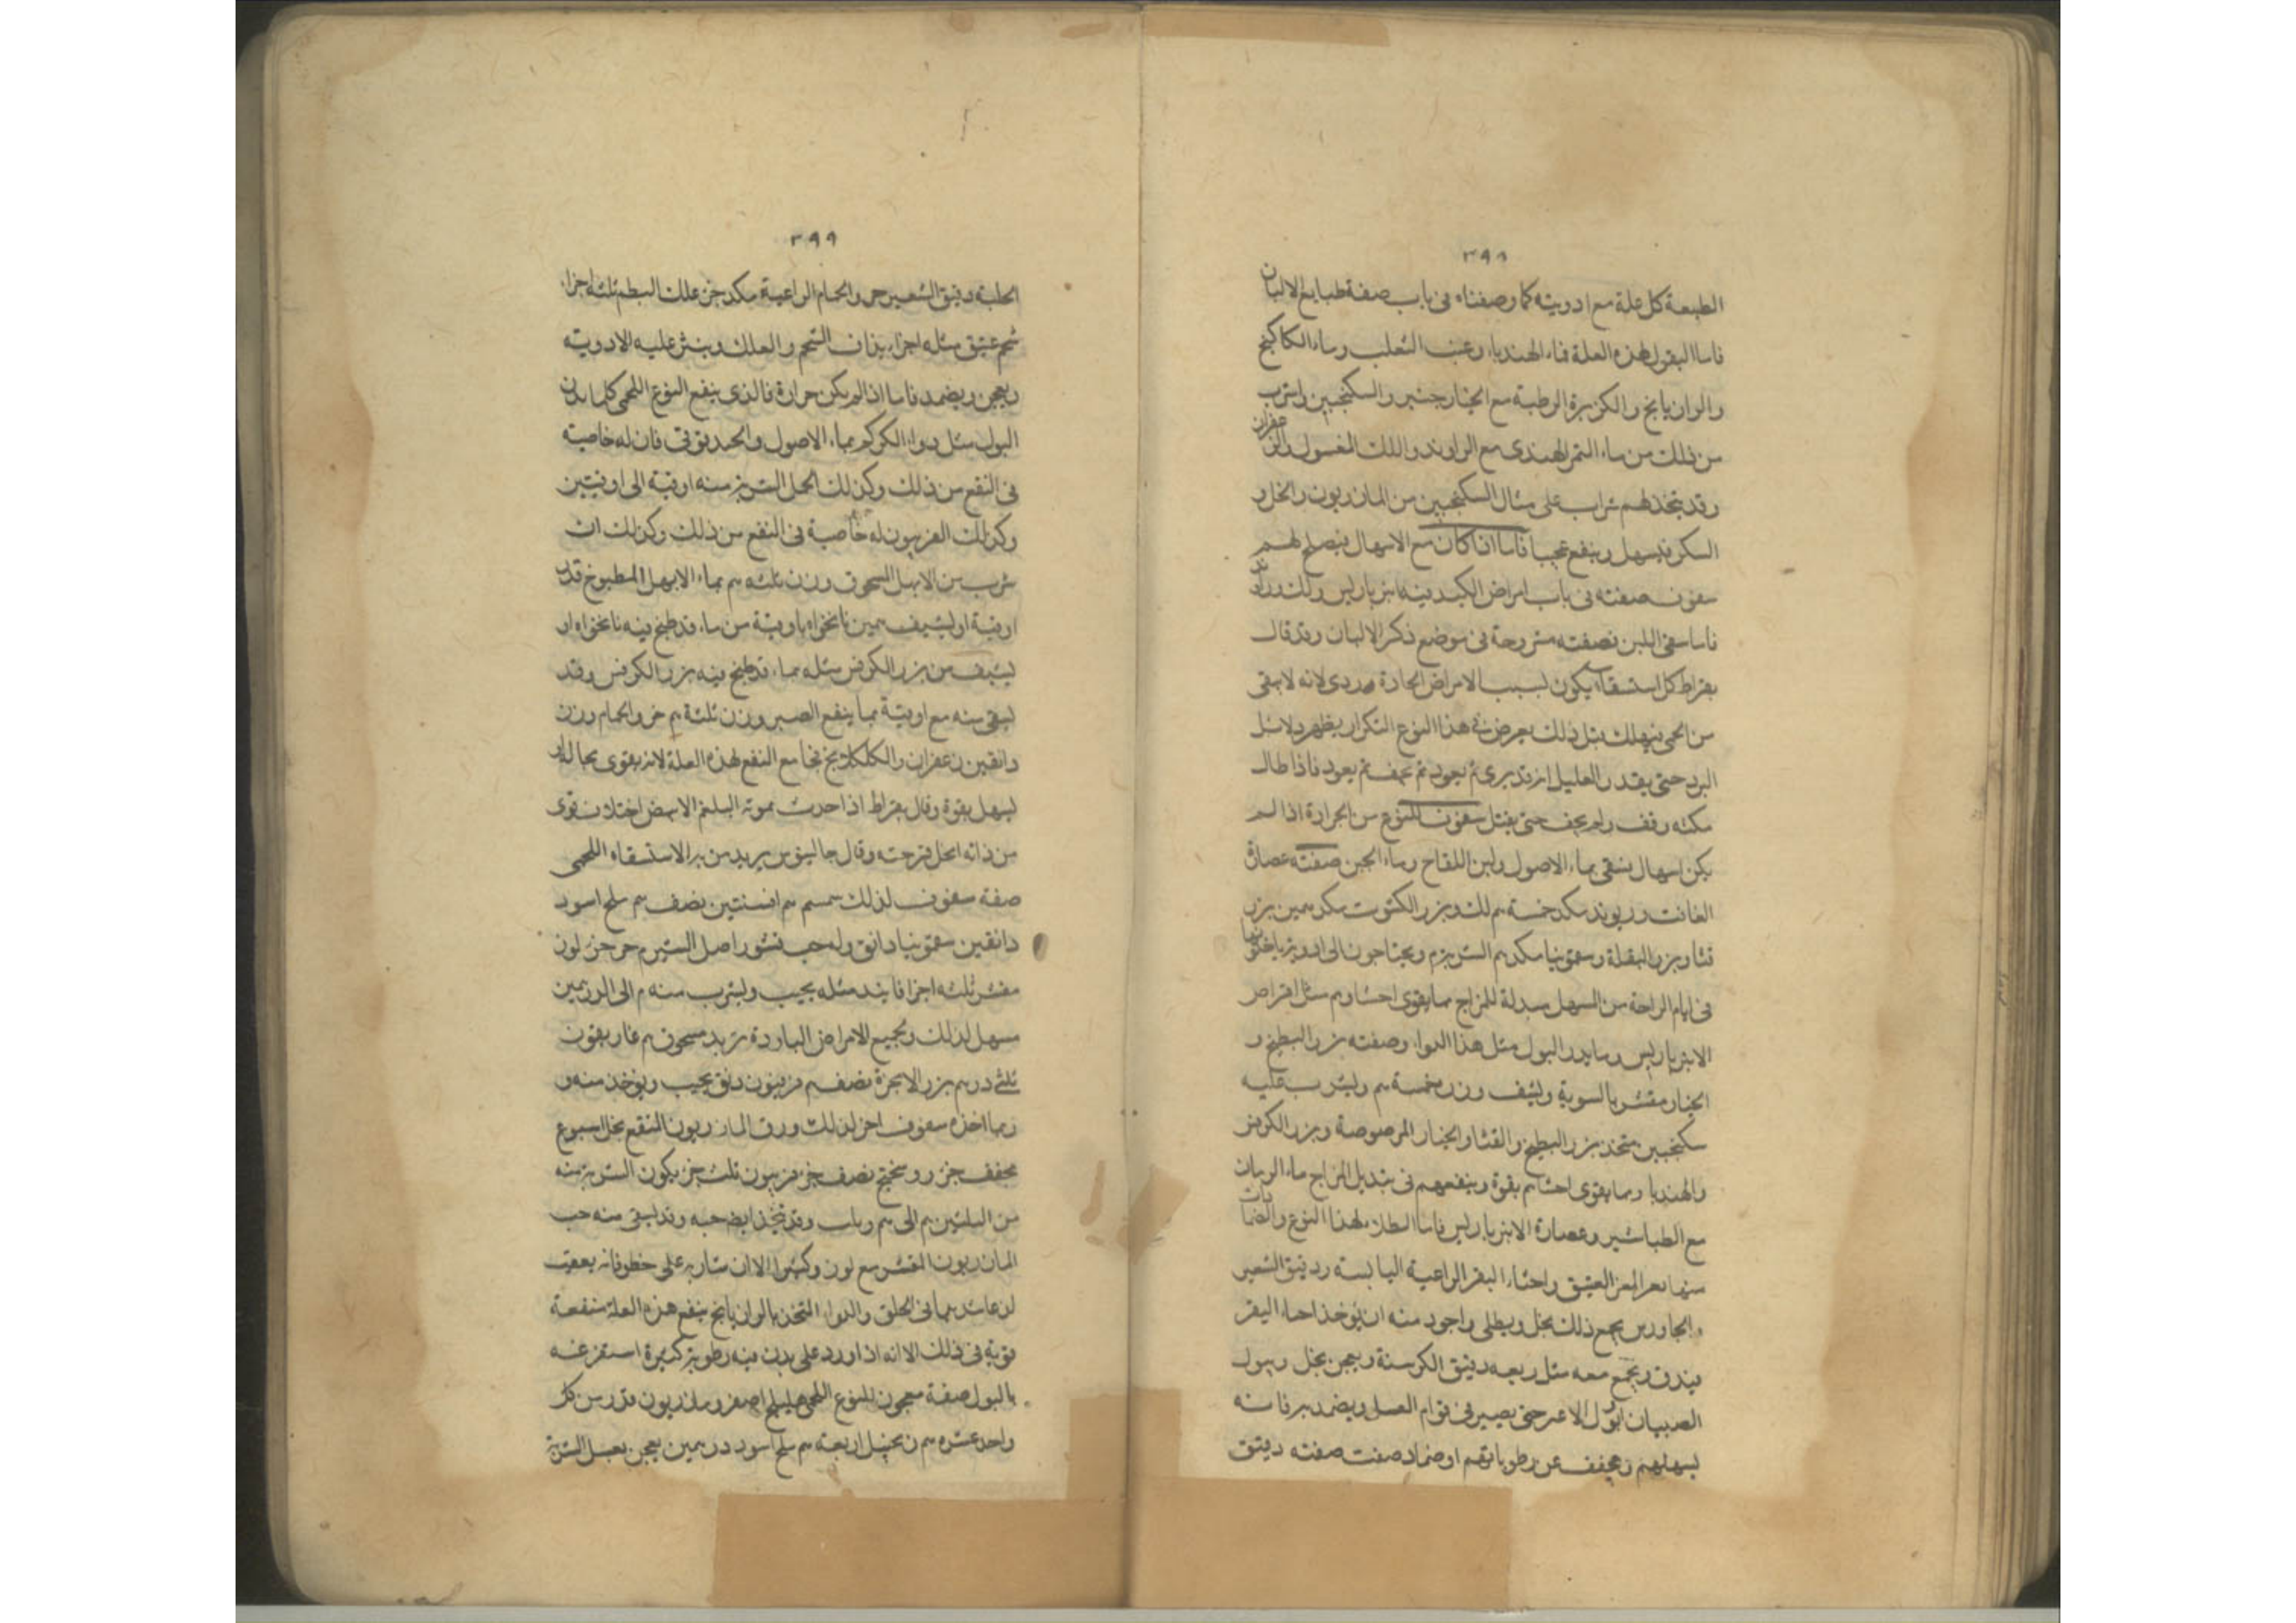 ٣٩٨
الطبعة كل علة مع ادويته كما وصفناه فى باب صفة طبايع الالبان
فاما البقول لهذه العلة فماء الهندبا وعنب الثعلب وماء الكاكنج
والرازيانج والكزبرة الرطبة مع الخيار جنبر والسكنجبين واشرب
من ذلك من ماء التمر الهندى مع الراوند واللك المغسول والزعفران
وقد يتخذ لهم شراب على مثال السكنجبين من المازريون والخل و
السكر فيسهل وينفع عجيبا فاما اذا كان مع الاسهال فيصلح لهم
سفوف صفته فى باب امراض الكبد فيه انبرباريس ولك وراوند
فاما سقى اللبن فصفته مشروحة فى موضع ذكر الالبان وقد قال
بقراط كل استسقاء يكون لسبب الامراض الحارة فردى لانه لا يبقى
من الحمى فيهلك قبل ذلك يعرض فى هذا النوع التكرار يظهر دلائل
البرد حتى يقدر العليل انه قد برى ثم يعود ثم يجف ثم يعود فاذا طال
مكثه وقف ولم يجف حتى يقتل سفوف للنوع من الحرارة اذا لم
يكن اسهال يسقى بماء الاصول ولبن اللقاح وماء الجبن صفته عصارة
الغافت وريوند مكد خمسة م لك وبزر الكشوت مكد همين بزر
قثا وبزر البقلة وسقمونيا مكد م الشربة م ويحتاجون الى ادوية ياخذونها
فى ايام الراحة من المسهل مبدلة للمزاج مما يقوى احشاوهم مثل اقراص
الانبرباريس وما يدر البول مثل هذا الدواء وصفته بزر البطيخ و
الخيار مقشر بالسوية ويسف وزن خمسة م ويشرب عليه
سكنجبين متخذ بزر البطيخ والقثا والخيار المرصوصة وبزر الكرفس
والهندبا ومما يقوى احشاهم بقوة وينفعهم فى تبديل المزاج ماء الرمان
مع الطباشير وعصارة الانبرباريس فاما الطلا لهذا النوع والضمادات
منها بعر المعز العتيق واحثاء البقر الراعية اليابسة ودقيق الشعير
والجاورس يجمع ذلك بخل ويطلى واجود منه ان يوخذ احثاء البقر
فيدق ويجمع معه مثل ربعه دقيق الكرسنة ويعجن بخل وببول
الصبيان او بول الاعنز حتى يصير فى قوام العسل ويضمد به فانه
يسهلهم ويجفف عن رطوباتهم او ضماد صفت صفته دقيق
٣٩٩
الحلبة دقيق الشعير حر والحمام الراعية مكد جز علك البطم ثلثة اجزاء
شحم عتيق مثله اجزاء يذاف الشحم والعلك وينثر عليه الادوية
ويعجن ويضمد فاما اذا لم يكن حرارة فالذى ينفع النوع اللحمى كلما يدر
البول مثل دواء الكركم بماء الاصول والحديقوتى فان له خاصية
فى النفع من ذلك وكذلك الحمل الشربة منه اوقية الى اوقيتين
وكذلك الفربيون له خاصية فى النفع من ذلك وكذلك ان
شرب من الابهل المسحوق وزن ثلثه م بماء الابهل المطبوخ قدر
اوقية او ليسف همين نانخواه باوقية من ماء قد طبخ فيه نانخواه او
ليسف من بزر الكرفس مثله بماء قد طبخ فيه بزر الكرفس وقد
يسقى منه مع اوقية مما ينفع الصبر وزن ثلثة م خرو الحمام وزن
دانقين زعفران والكلكلانج نجا مع النفع لهذه العلة لانه يقوى بحاله و
ليسهل بقوة وقال بقراط اذا حدث بموته البلغم الابيض اختلاف قوى
من ذاته انحل مرضه وقال جالينوس يريد من به الاستسقاء اللحمى
صفة سفوف لذلك سمسم م افسنتين نصف م ملح اسود
دانقين سقمونيا دانق وله حب قشور اصل الشبرم جز جز لوز
مقشر ثلثه اجزا فانيد مثله يحبب ويشرب منه م الى الدرهمين
مسهل لذلك ولجميع الامراض الباردة تربد مسحوق م غاريقون
ثلثى درهم بزر الانجرة نصف م فربيون دنق يحبب ويوخذ منه و
ربما اخذه سفوف اخر لذلك ورق المازريون المنقع بخل اسبوع
مجفف جز روسختج نصف جز فربيون ثلث جز يكون الشربة منه
من الثلثين م الى م وباب وقد يتخذ ايضا حبه وقد يسقى منه حب
المازريون المقشر مع لوز وكثيرا الا ان شاربه على خطر فانه يعقب
لذعا شديدا فى الحلق والدواء المتخذ بالرازيانج ينفع هذه العلة منفعة
قوية فى ذلك الا انه اذا ورد على بدن فيه رطوبة كثيرة استفرغه
بالبول صفة معجون للنوع اللحمى هليلج اصفر ومازريون قدر من كل
واحد عشرة م زنجبيل اربعة م ملح اسود درهمين يعجن بعسل الشربة